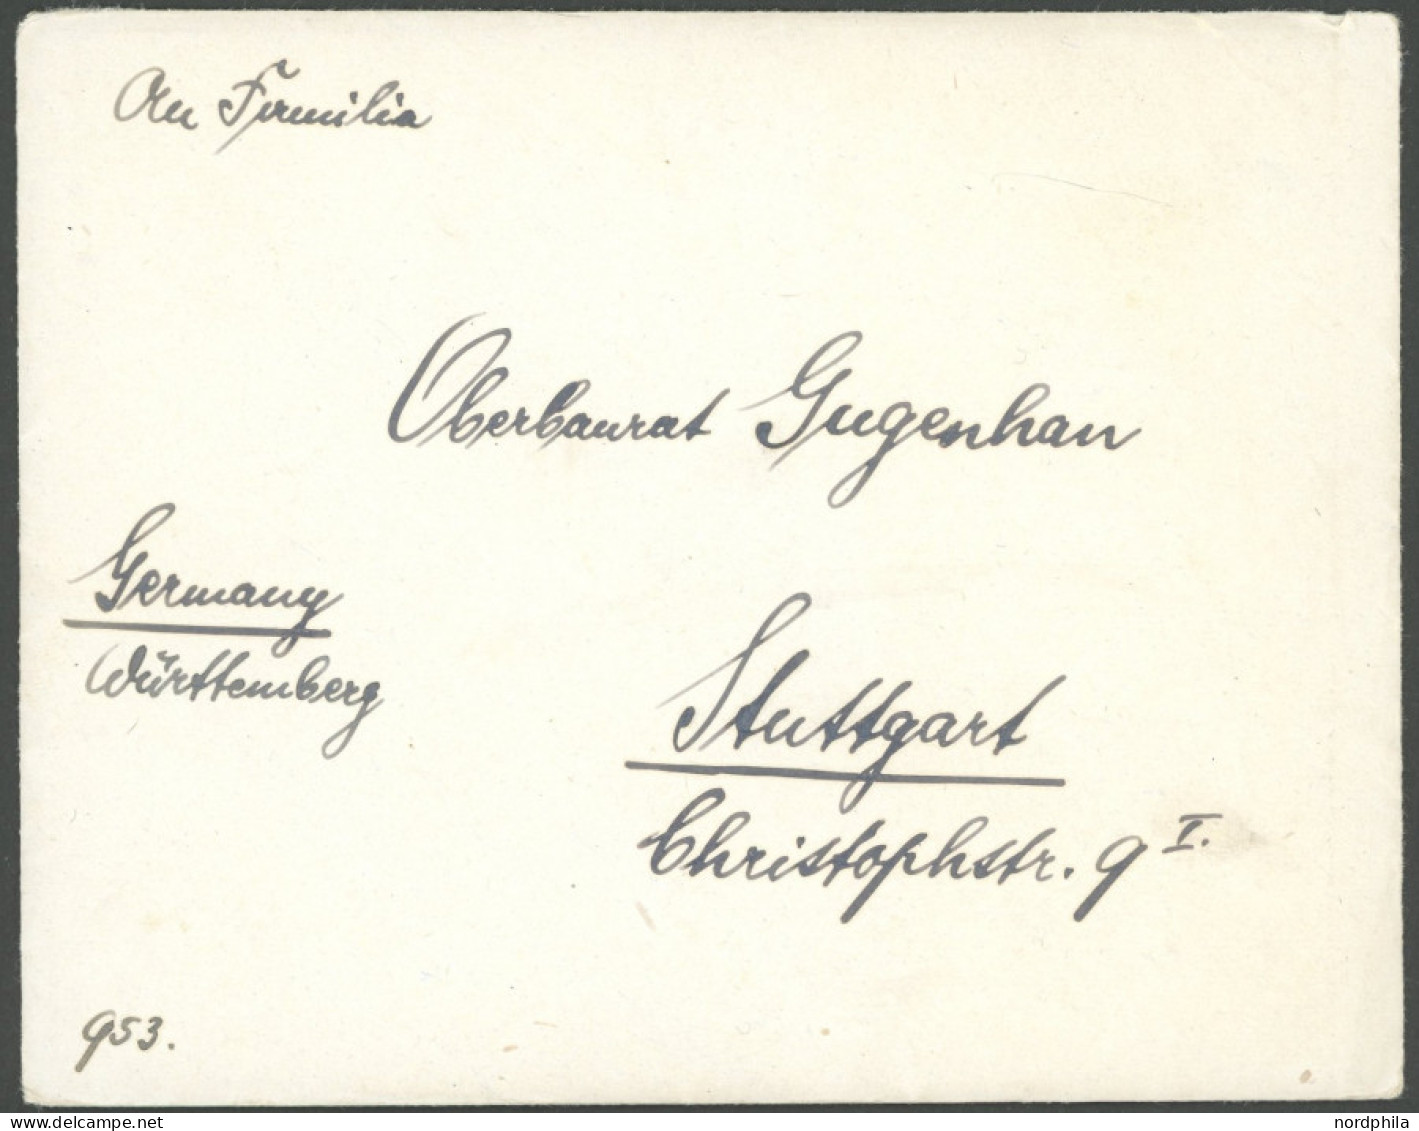 An Familia
Oberbaurat Gugenhan
Germany
Württemberg
Stuttgart
Christophstr. 9 I.
953.
delcampe.net
nordphila